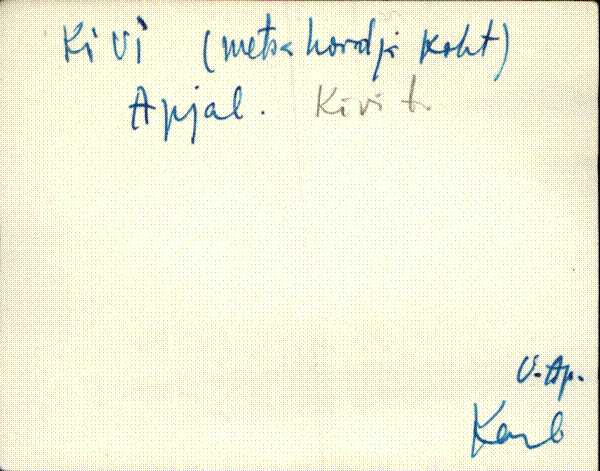 Kivi (metsahordja koht)
Apjal. Kivi t.
V.-Ap.
Karb